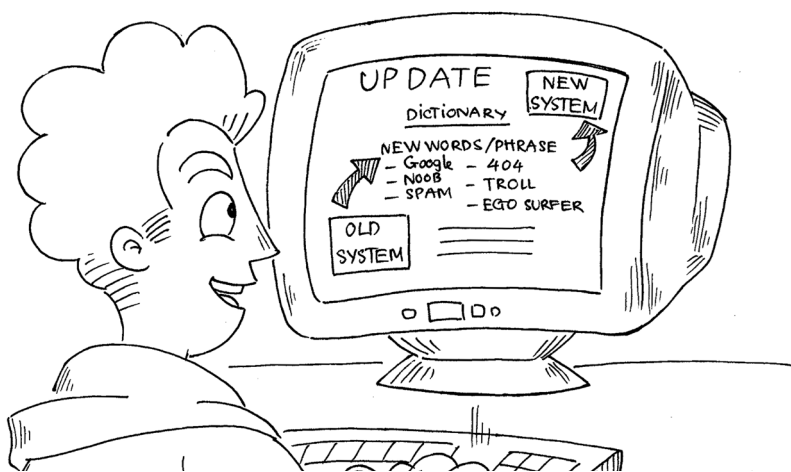 UPDATE
NEW
SYSTEM
DICTIONARY
NEW WORDS/PHRASE
- Google - 404
- NOOB - TROLL
- SPAM - EGO SURFER
OLD
SYSTEM